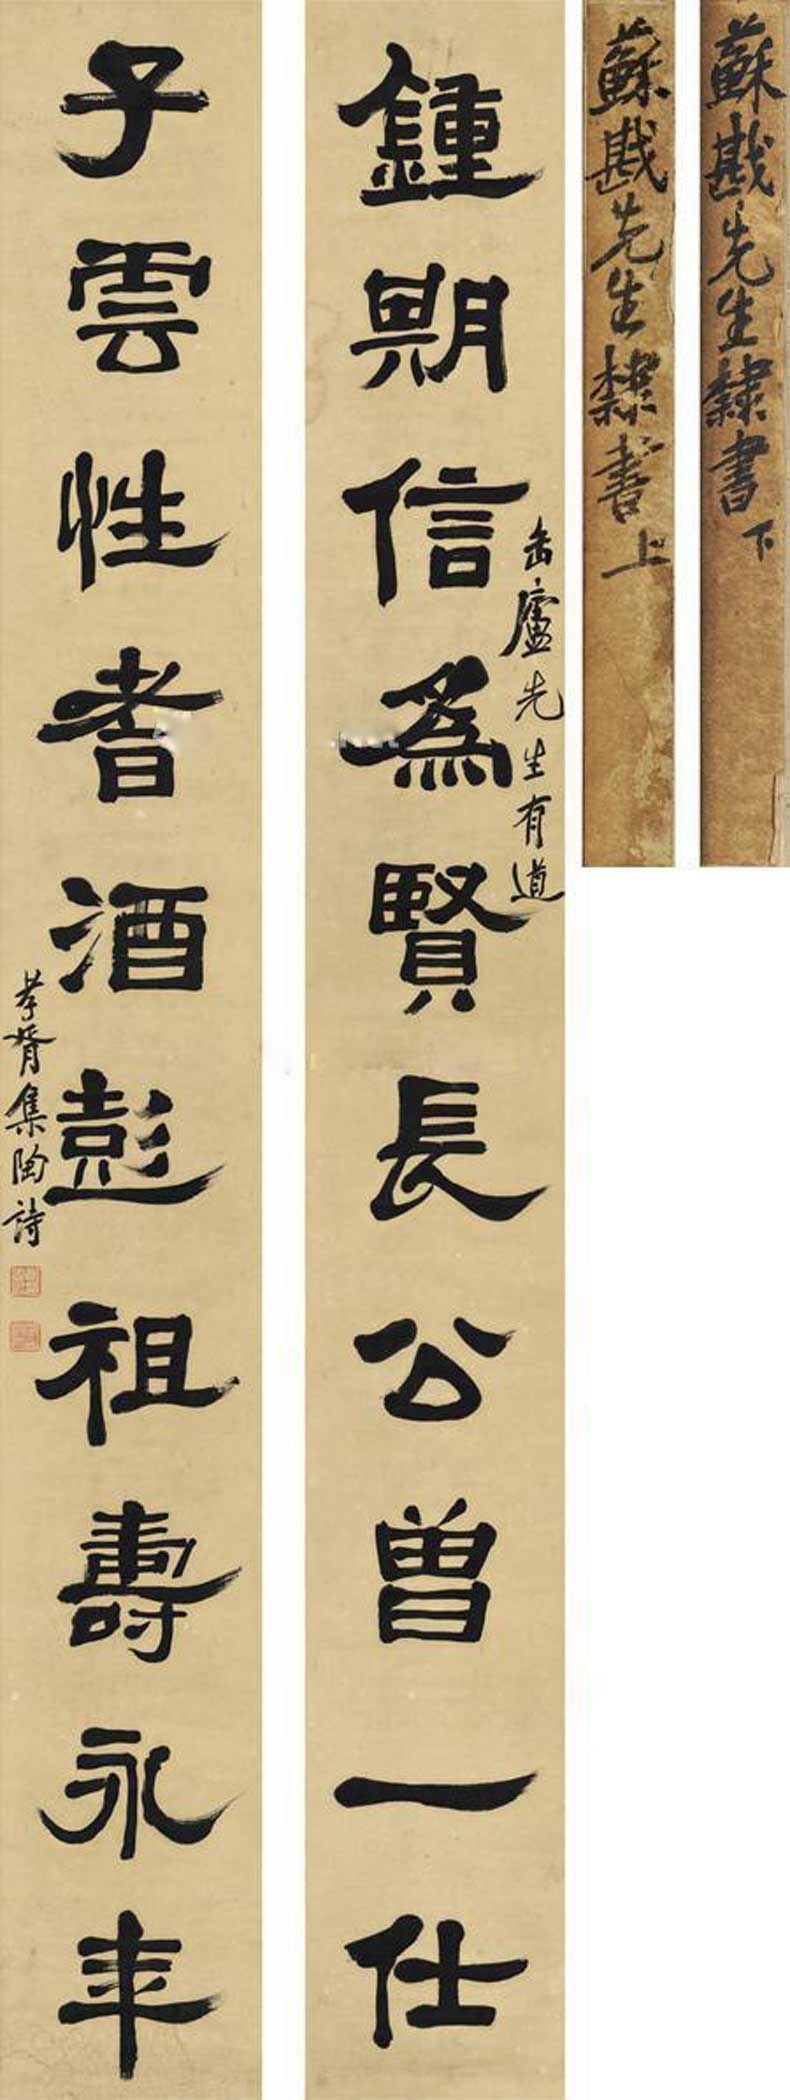 蘇戡先生隸書下
蘇戡先生隸書上
缶廬先生有道
鍾期信為賢長公曾一仕
子雲性耆酒彭祖壽永年
孝胥集陶詩